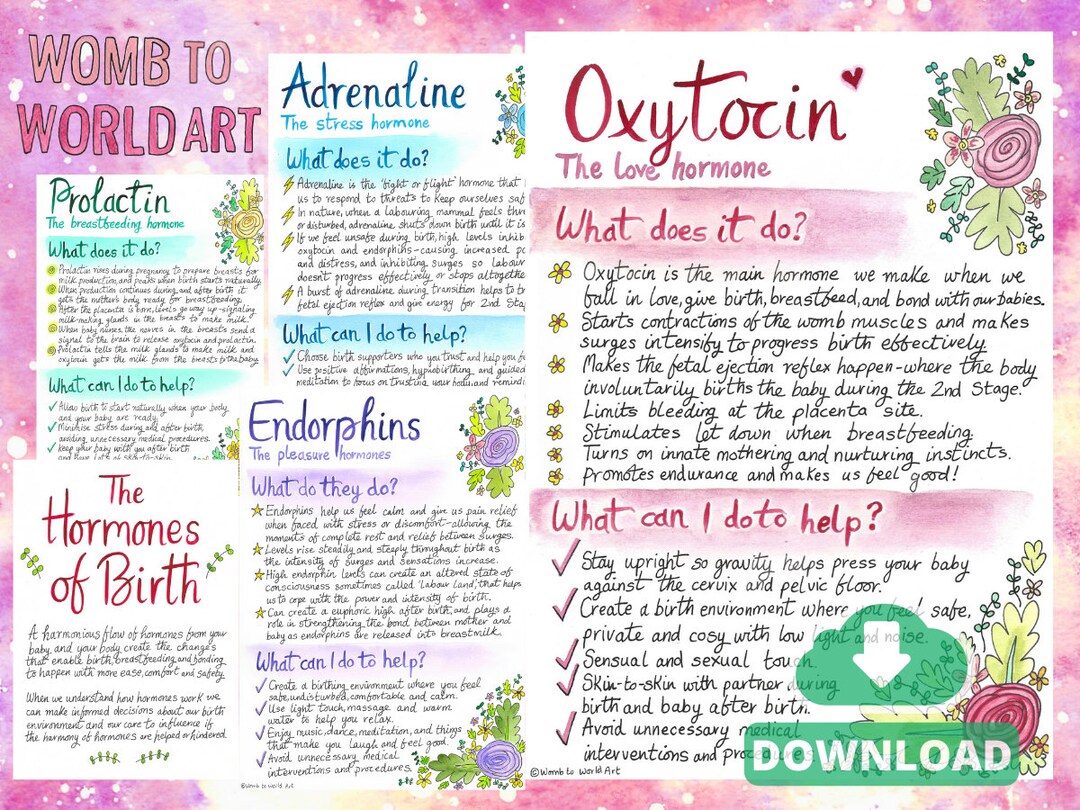 WOMB TO
WORLD ART
Prolactin
The breastfeeding hormone
What does it do?
Prolactin rises during pregnancy to prepare breasts for
milk production, and peaks when birth starts naturally.
When production continues during and after birth it
gets the mother's body ready for breastfeeding.
After the placenta is born, levels go way up - signaling
milk-making glands in the breasts to make milk.
When baby nurses, the nerves in the breasts send a
signal to the brain to release oxytocin and prolactin.
Prolactin tells the milk glands to make milk and
oxytocin gets the milk from the breasts to the baby.
What can I do to help?
Allow birth to start naturally when your body
and your baby are ready.
Minimise stress during and after birth,
avoiding unnecessary medical procedures.
Keep your baby with you after birth
and have lots of skin-to-skin
The
Hormones
of Birth
A harmonious flow of hormones from your
baby, and your body create the changes
that enable birth, breastfeeding, and bonding
to happen with more ease, comfort and safety.
When we understand how hormones work we
can make informed decisions about our birth
environment and our care to influence if
the harmony of hormones are helped or hindered.
Adrenaline
The stress hormone
What does it do?
Adrenaline is the 'fight or flight' hormone that
us to respond to threats to keep ourselves saf
In nature, when a labouring mammal feels thr
or disturbed, adrenaline shuts down birth until it is
If we feel unsafe during birth, high levels inhib
oxytocin and endorphins - causing increased pa
and distress, and inhibiting surges so labour
doesn't progress effectively or stops altogethe
A burst of adrenaline during transition helps to tr
fetal ejection reflex and give energy for 2nd Sta
What can I do to help?
Choose birth supporters who you trust and help you f
Use positive affirmations, hypnobirthing, and guided
meditation to focus on trusting your body and remindi
Endorphins
The pleasure hormones
What do they do?
Endorphins help us feel calm and give us pain relief
when faced with stress or discomfort - allowing the
moments of complete rest and relief between surges.
Levels rise steadily and steeply throughout birth as
the intensity of surges and sensations increase.
High endorphin levels can create an altered state of
consciousness sometimes called 'Labour Land', that helps
us to cope with the power and intensity of birth.
Can create a euphoric high after birth, and plays a
role in strengthening the bond between mother and
baby as endorphins are released into breastmilk.
What can I do to help?
Create a birthing environment where you feel
safe, undisturbed, comfortable and calm.
Use light touch, massage and warm
water to help you relax.
Enjoy music, dance, meditation, and things
that make you laugh and feel good.
Avoid unnecessary medical
interventions and procedures.
©Womb to World Art
Oxytocin
The love hormone
What does it do?
Oxytocin is the main hormone we make when we
fall in love, give birth, breastfeed, and bond with our babies.
Starts contractions of the womb muscles and makes
surges intensify to progress birth effectively.
Makes the fetal ejection reflex happen - where the body
involuntarily births the baby during the 2nd Stage.
Limits bleeding at the placenta site.
Stimulates let down when breastfeeding.
Turns on innate mothering and nurturing instincts.
Promotes endurance and makes us feel good!
What can I do to help?
Stay upright so gravity helps press your baby
against the cervix and pelvic floor.
Create a birth environment where you feel safe,
private and cosy with low light and noise.
Sensual and sexual touch.
Skin-to-skin with partner during
birth and baby after birth.
Avoid unnecessary medical
interventions and procedures.
©Womb to World Art
DOWNLOAD